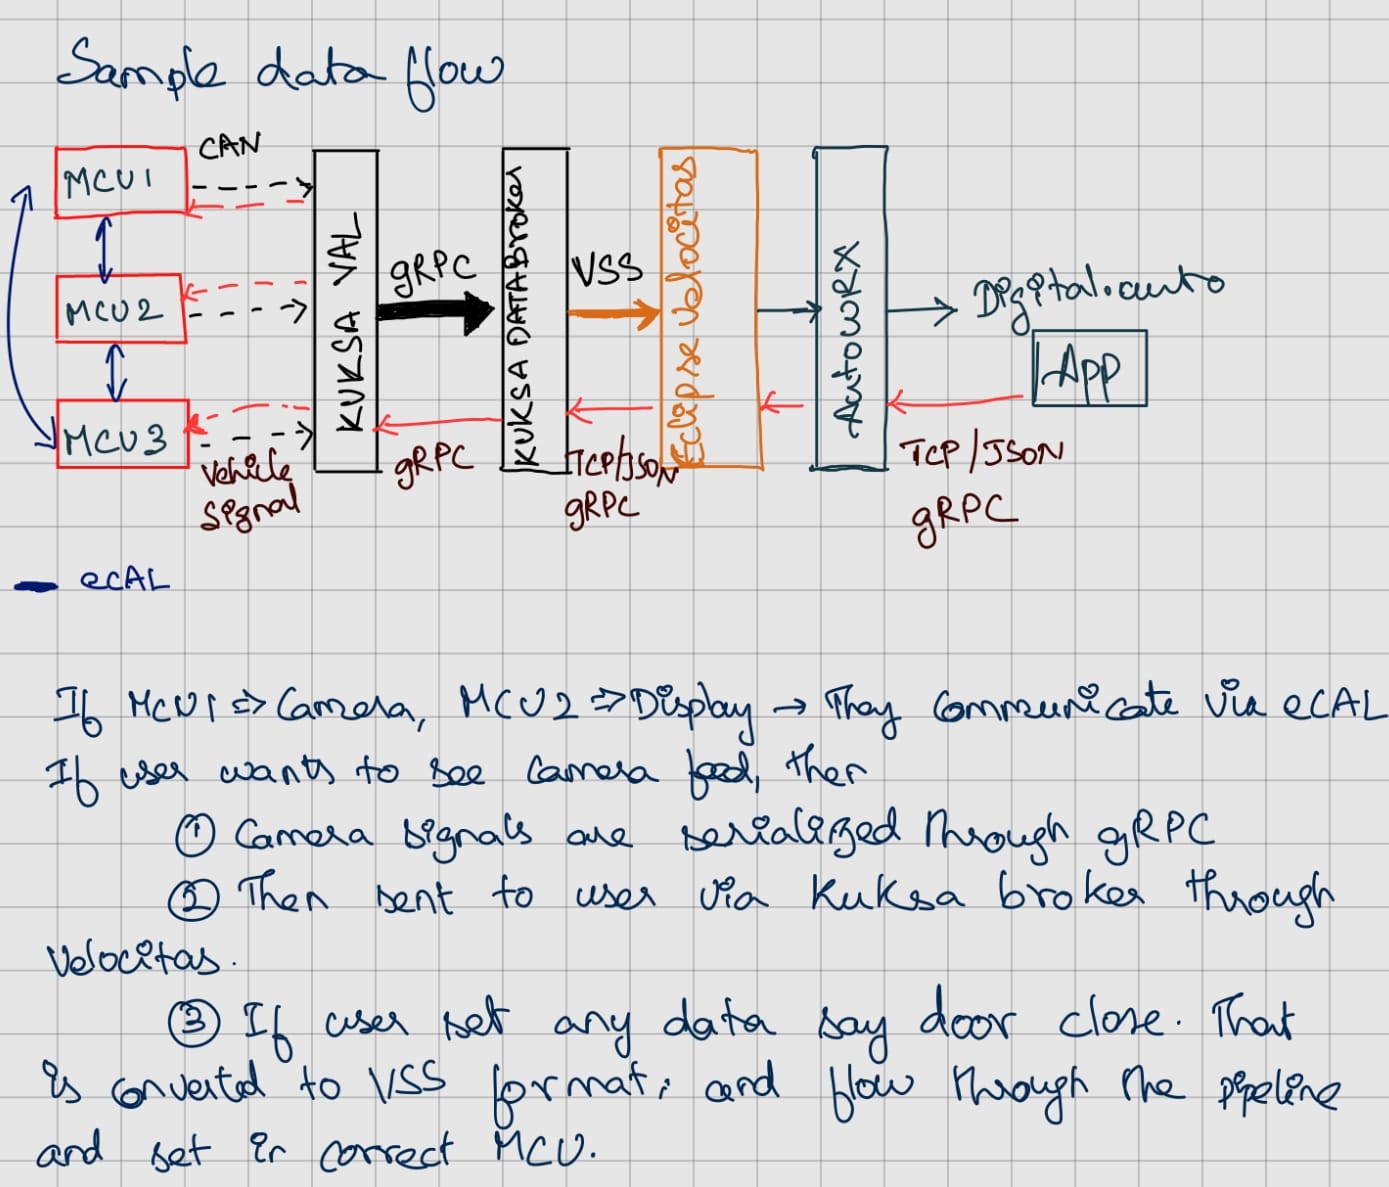 Sample data flow
CAN
MCU1
MCU2
MCU3
Vehicle
Signal
KUKSA VAL
gRPC
gRPC
KUKSA DATABroker
VSS
TCP/JSON
gRPC
Eclipse Velocitas
AutowRX
Digital.auto
App
TCP/JSON
gRPC
eCAL
If MCU1 => Camera, MCU2 => Display → They Communicate via eCAL
If user wants to see Camera feed, then
① Camera signals are serialized through gRPC
② Then sent to user via Kuksa broker through
Velocitas.
③ If user set any data say door close. That
is converted to VSS format, and flow through the pipeline
and set in correct MCU.